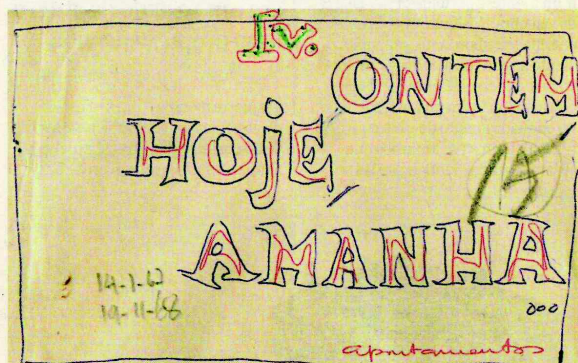 IV.
ONTEM
HOJE
15
AMANHA
14-1-62
19-11-68
ooo
apontamentos